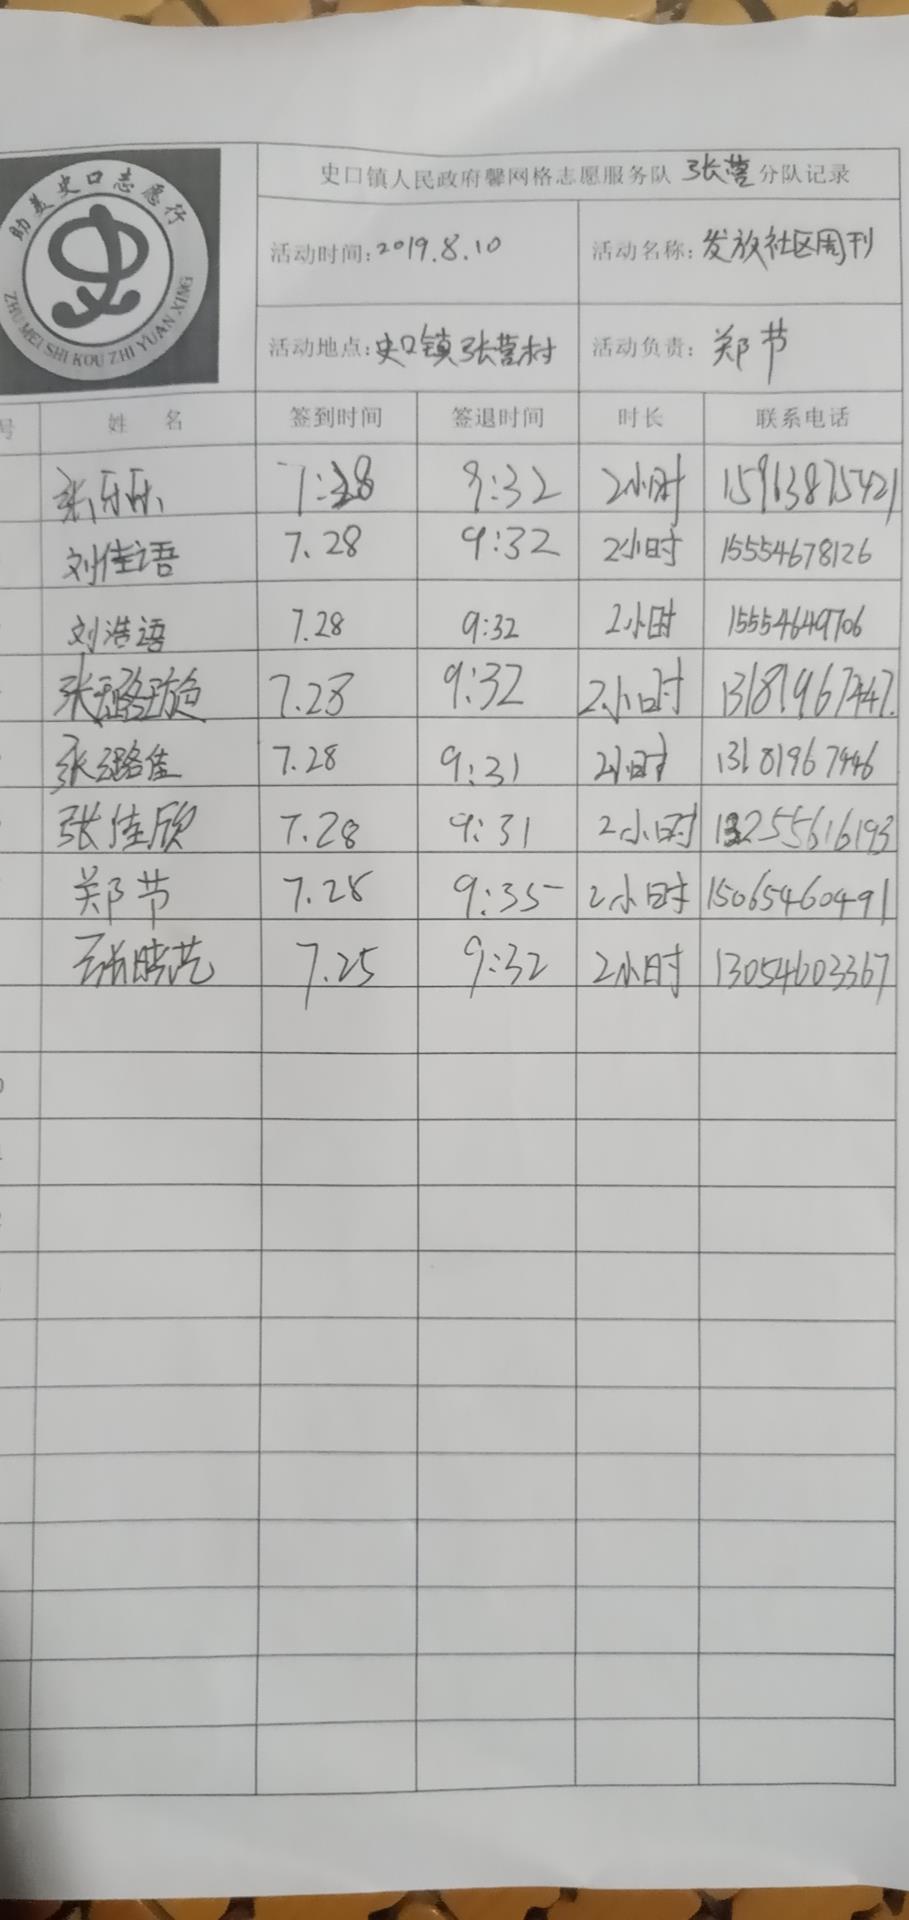 助美史口志愿行
ZHU MEI SHI KOU ZHI YUAN XING
史口镇人民政府馨网格志愿服务队 张营 分队记录
活动时间:2019.8.10 活动名称:发放社区周刊
活动地点:史口镇张营村 活动负责:郑节
号 姓 名 签到时间 签退时间 时长 联系电话
张乐乐 7:28 9:32 2小时 15963875421
刘佳语 7.28 9:32 2小时 15554678126
刘浩语 7.28 9:32 2小时 15554649706
张璐璇 7.28 9:32 2小时 13181967447.
张璐佳 7.28 9:31 2小时 13181967446
张佳欣 7.28 9:31 2小时 13255616193
郑节 7.28 9:35 2小时 15065460491
晓艺 7.25 9:32 2小时 13054603367